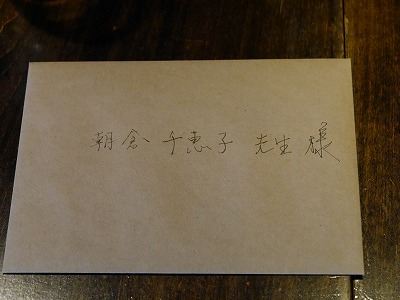 朝倉 千恵子 先生 様